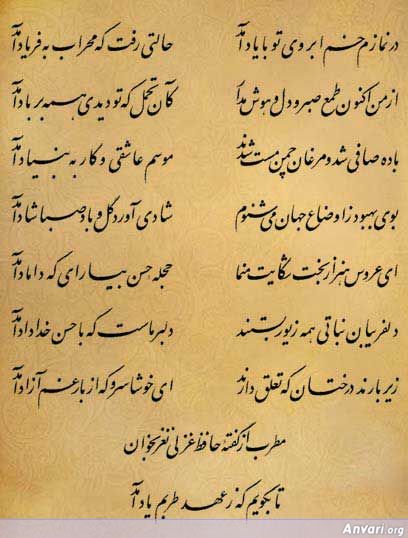 در نمازم خم ابروی تو با یاد آمد حالتی رفت که محراب به فریاد آمد
از من اکنون طمع صبر و دل و هوش مدار کآن تحمل که تو دیدی همه بر باد آمد
باده صافی شد و مرغان چمن مست شدند موسم عاشقی و کار به بنیاد آمد
بوی بهبود ز اوضاع جهان می‌شنوم شادی آورد گل و باد صبا شاد آمد
ای عروس هنر از بخت شکایت منما حجله حسن بیارای که داماد آمد
دلفریبان نباتی همه زیور بستند دلبر ماست که با حسن خداداد آمد
زیر بارند درختان که تعلق دارند ای خوشا سرو که از بار غم آزاد آمد
مطرب از گفته حافظ غزلی نغز بخوان
تا بگویم که ز عهد طربم یاد آمد
Anvari.org